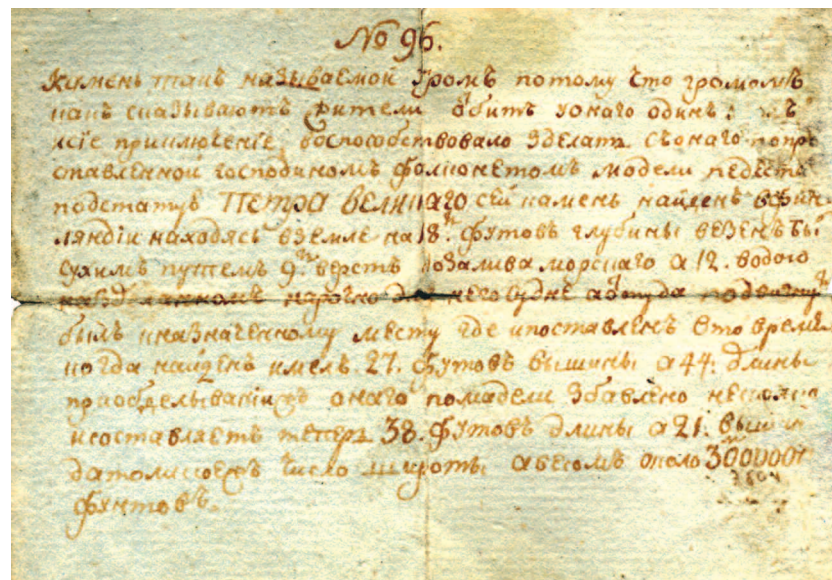 No 96.
Камень такъ называемой громъ потому что громомъ
какъ сказываютъ жители обитъ у онаго одинъ
сіе приключеніе воспособствовало зделать съ онаго попре
ставленной господиномъ фолконетомъ модели педеста
подстатуе ПЕТРА ВЕЛИКАГО сей камень найденъ вфин
ляндіи находясь вземле на 18ть футовъ глубины везенъ бы
сухимъ путемъ 9ть верстъ дозалива морскаго а 12. водою
нарочно для него суднѣ а оттуда
былъ кназначенному месту где ипоставленъ Вто время
когда найденъ имелъ 27. футовъ вышины а 44. длины
приобделываніи онаго помадели Збавлено несколко
исоставляетъ теперь 38. футовъ длины а 21. вышин
датоликоежъ число широты а весомъ около 3000000
фунтовъ.